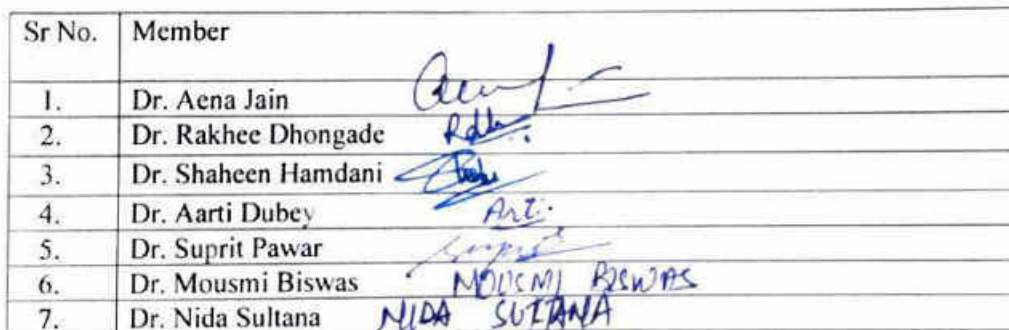 Sr No. Member
1. Dr. Aena Jain
2. Dr. Rakhee Dhongade
3. Dr. Shaheen Hamdani
4. Dr. Aarti Dubey Arti
5. Dr. Suprit Pawar Suprit
6. Dr. Mousmi Biswas MOUSMI BISWAS
7. Dr. Nida Sultana NIDA SULTANA